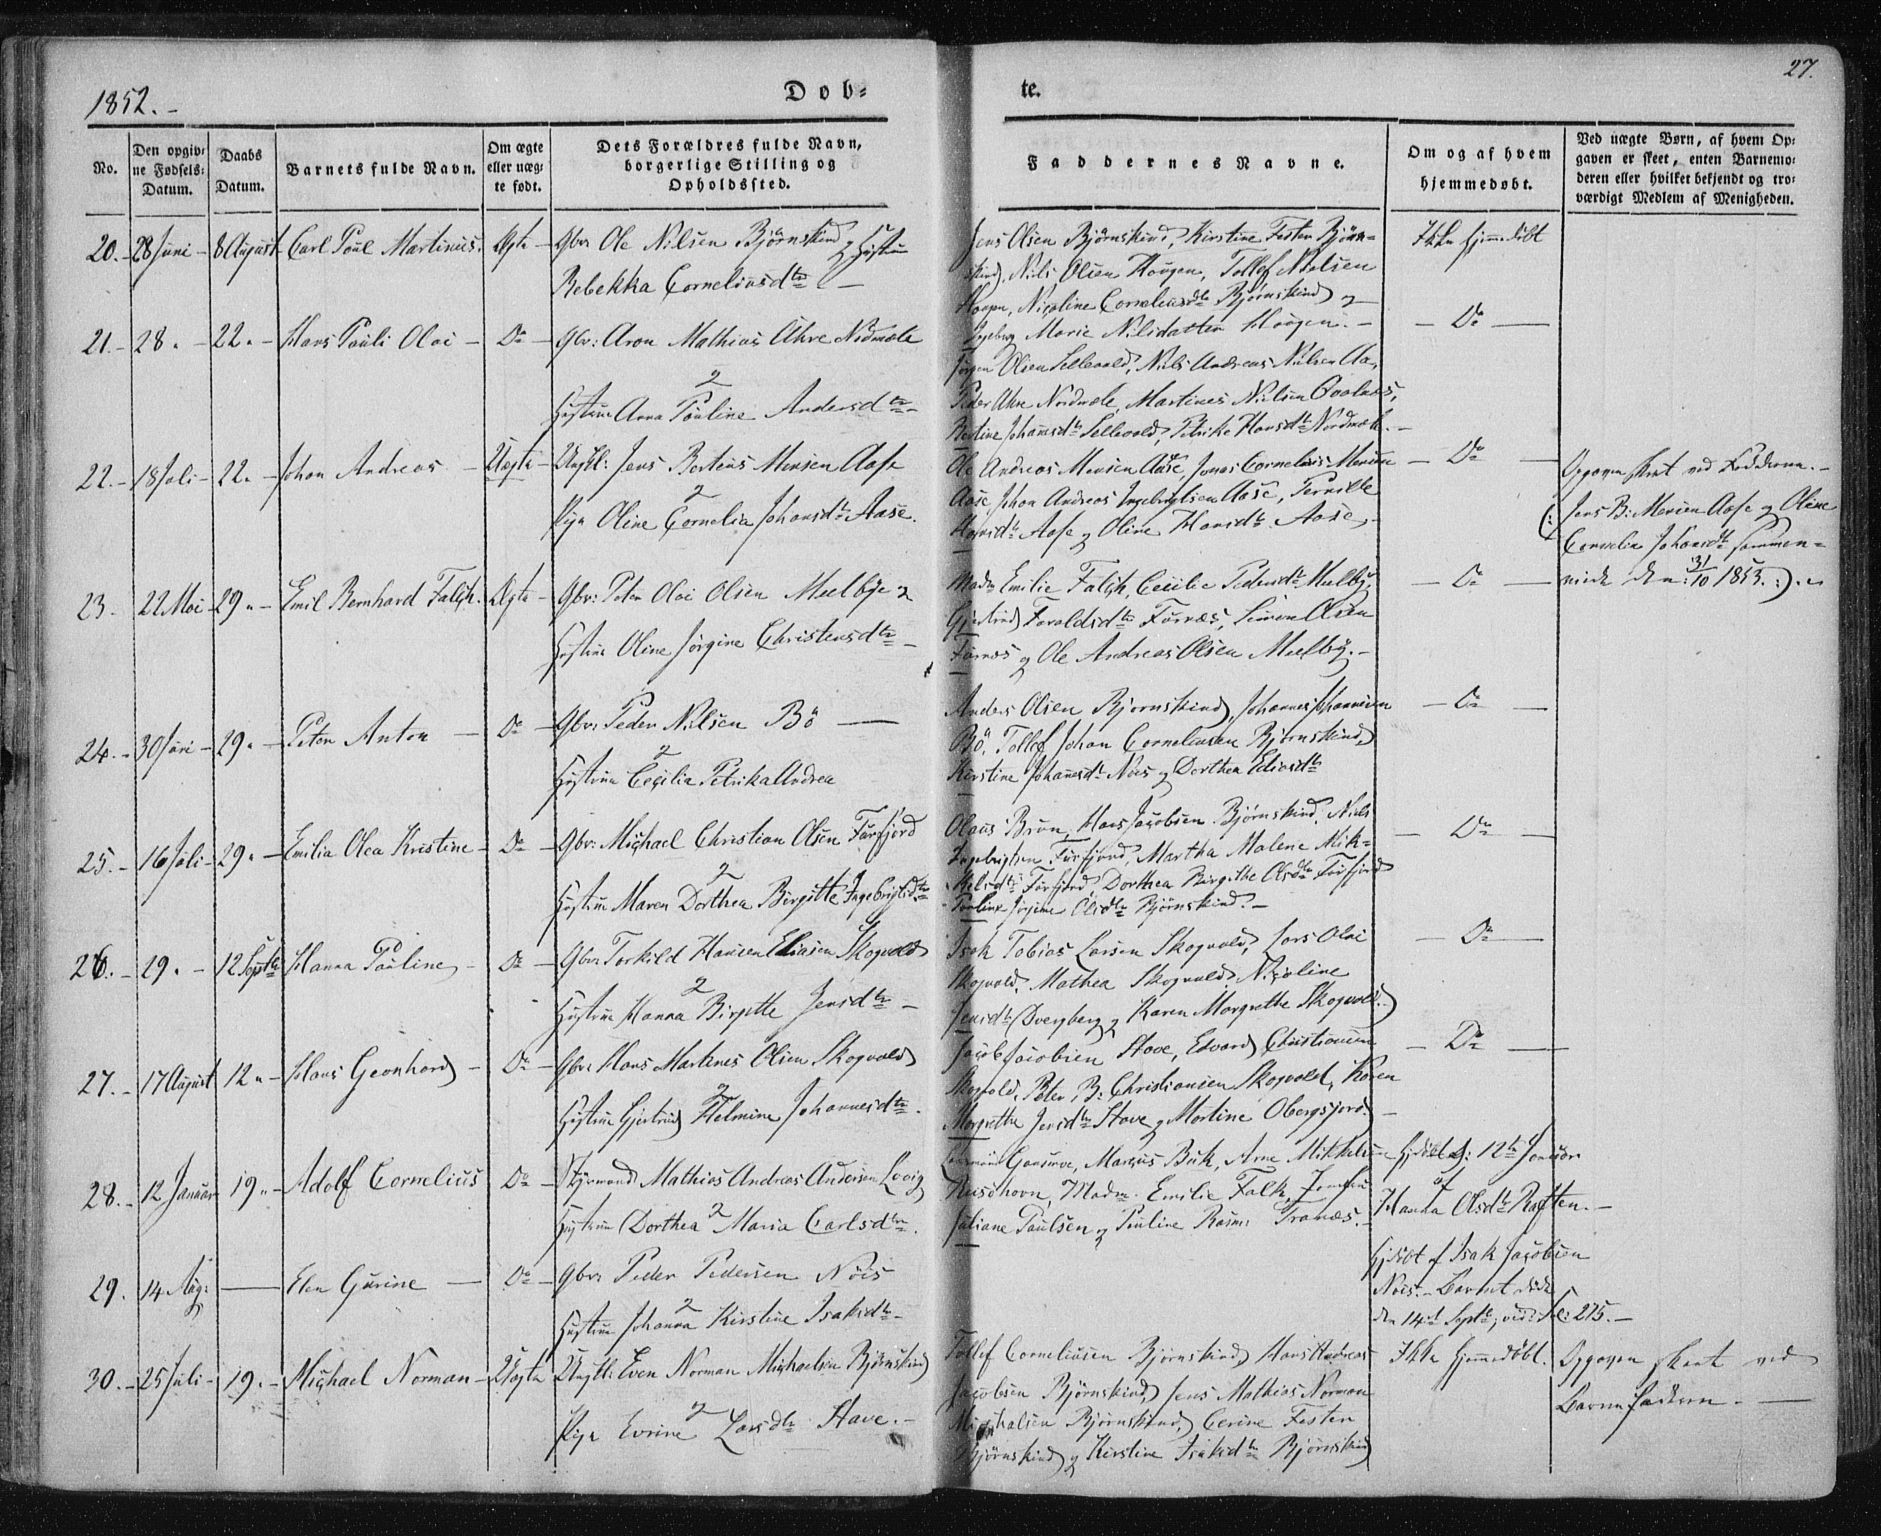 1852.
Døb=
te.
27.
No.
Den opgiv=
ne Fødsels=
Datum.
Daabs
Datum.
Barnets fulde Navn.
Om ægte
eller uæg=
te født.
Dets Forældres fulde Navn,
borgerlige Stilling og
Opholdssted.
Faddernes Navne.
Om og af hvem
hjemmedøbt.
Ved uægte Børn, af hvem Op=
gaven er skeet, enten Barnemo=
deren eller hvilket bekjendt og tro=
værdigt Medlem af Menigheden.
20. 28 Juni 8 August Carl Poul Martinus. Ægte Gbr: Ole Nilsen Bjørnskind & Hustru
Rebekka Corneliusdtr
Jens Olsen Bjørnskind, Kirstine Festen Bjørn=
skind, Nils Olsen Hougen, Tollef Nielsen
Hougen, Nicoline Corneliusdtr Bjørnskind og
Ingeborg Marie Nilsdatter Hougen.
Ikke hjemmedøbt
21. 28 22 Hans Pouli Oloi Do Gbr: Aron Mathias Ahre Nordmele
&
Hustru Anna Pouline Andersdtr
Jørgen Olsen Sellevold, Nils Andreas Nilsen Aa,
Peder Nordmele, Martines Nielsen
Bertine Johansdtr Sellevold, Petrike Hansdtr Nordmele.
Do
22. 18 Juli 22 Johan Andreas Uægte Ungkl: Jens Berteus Monsen Aase
&
Pige Oline Cornelia Johansdtr Aase.
Ole Andreas Monsen Aase, Jonas Cornelius Monsen
Aase, Johan Andreas Ingebrigtsen Aase, Pernille
Hansdtr Aase og Oline Hansdtr Aase.
Do
Opgaven skeet ved Fadderne.
(: Jens B: Monsen Aase og Oline
Cornelia Johansdtr sammen=
viede den 31/10 1853. :)
23. 22 Mai 29 Emil Bernhard Falch. Ægte Gbr: Peter Oloi Olsen Meelbye &
Hustru Oline Jørgine Christensdtr
Madm Emilie Falch, Cecilie Pedersdtr Melby,
Gjertrud Haroldsdtr Furnæs, Simon Olsen
Furnæs og Ole Andreas Olsen Melby.
Do
24. 30 Juni 29 Peter Anton Do Gbr: Peder Nilsen Bö
&
Hustru Cecilia Petrika Andrea
Anders Olsen Bjørnskind, Johannes Johannesen
Bö, Tollef Johan Corneliussen Bjørnskind,
Kirstine Johannesdtr Nøis og Dorthea Eliasdtr
Do
25. 16 Juli 29 Emilia Olea Kristine Do Gbr: Michael Christian Olsen Furfjord
&
Hustru Maren Dorthea Birgitte Ingebrigtsdtr
Olaus Brun, Hans Jacobsen Bjørnskind, Niels
Ingebrigtsen Furfjord, Martha Malene Mik=
kelsdtr Furfjord, Dorthea Birgithe Olsdtr Furfjord
Pauline Jørgine Olsdtr Bjørnskind.
Do
26. 29 12 Septbr Hanna Pouline Do Gbr: Torkild Hansen Eliasen Skogvold
&
Hustru Hanna Birgitte Jensdtr
Isak Tobias Larsen Skogvold, Lars Oloi
Skogvold, Mathea Skogvold, Nicoline
Jensdtr Dverberg og Karen Margrethe Skogvold.
Do
27. 17 August 12 Hans Geonhard Do Gbr: Hans Martines Olsen Skogvold
&
Hustru Gjertrud Helmine Johannesdtr.
Jacob Jacobsen Stave, Edvard Christiansen
Skogvold, Peter B: Christiansen Skogvold, Karen
Margrethe Jensdtr Stave og Martine Obergsjord.
Do
28. 12 Januar 19 Adolf Cornelius Do Styrmand Mathias Andreas Andersen Lovig
&
Hustru Dorthea Maria Carlsdtr.
Marcus Buk, Arne Mikkelsen
Rusdhovn, Madm. Emilie Falk, Jomfru
Juliane Paulsen og Pauline Rasm: Tranæs.
Hjdøbt d: 12te Januar
af
Hanna Olsdtr Raften.
29. 14 Aug: Elen Gurine Do Gbr: Peder Pedersen Nöis
&
Hustru Johanna Kirstine Isaksdtr
Hjdøbt af Isak Jacobsen
Nöis. Barnet døde
den 14de Septbr, vid: Fol: 275.
30. 25 Juli 19 Michael Norman Uægte Ungkl: Even Norman Michaelsen Bjørnskind
&
Pige Evrine Larsdtr Stave.
Tollef Corneliussen Bjørnskind, Hans Andreas
Jacobsen Bjørnskind, Jens Mathias Norman
Michalsen Bjørnskind, Cerine Festen
Bjørnskind og Kirstine Isaksdtr Bjørnskind
Ikke hjemmedøbt.
Opgaven skeet ved
Barnefaderen.